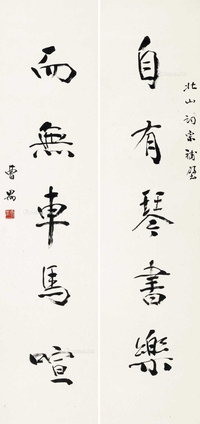 北山詞宗補壁
自有琴書樂
而無車馬喧
曹禺